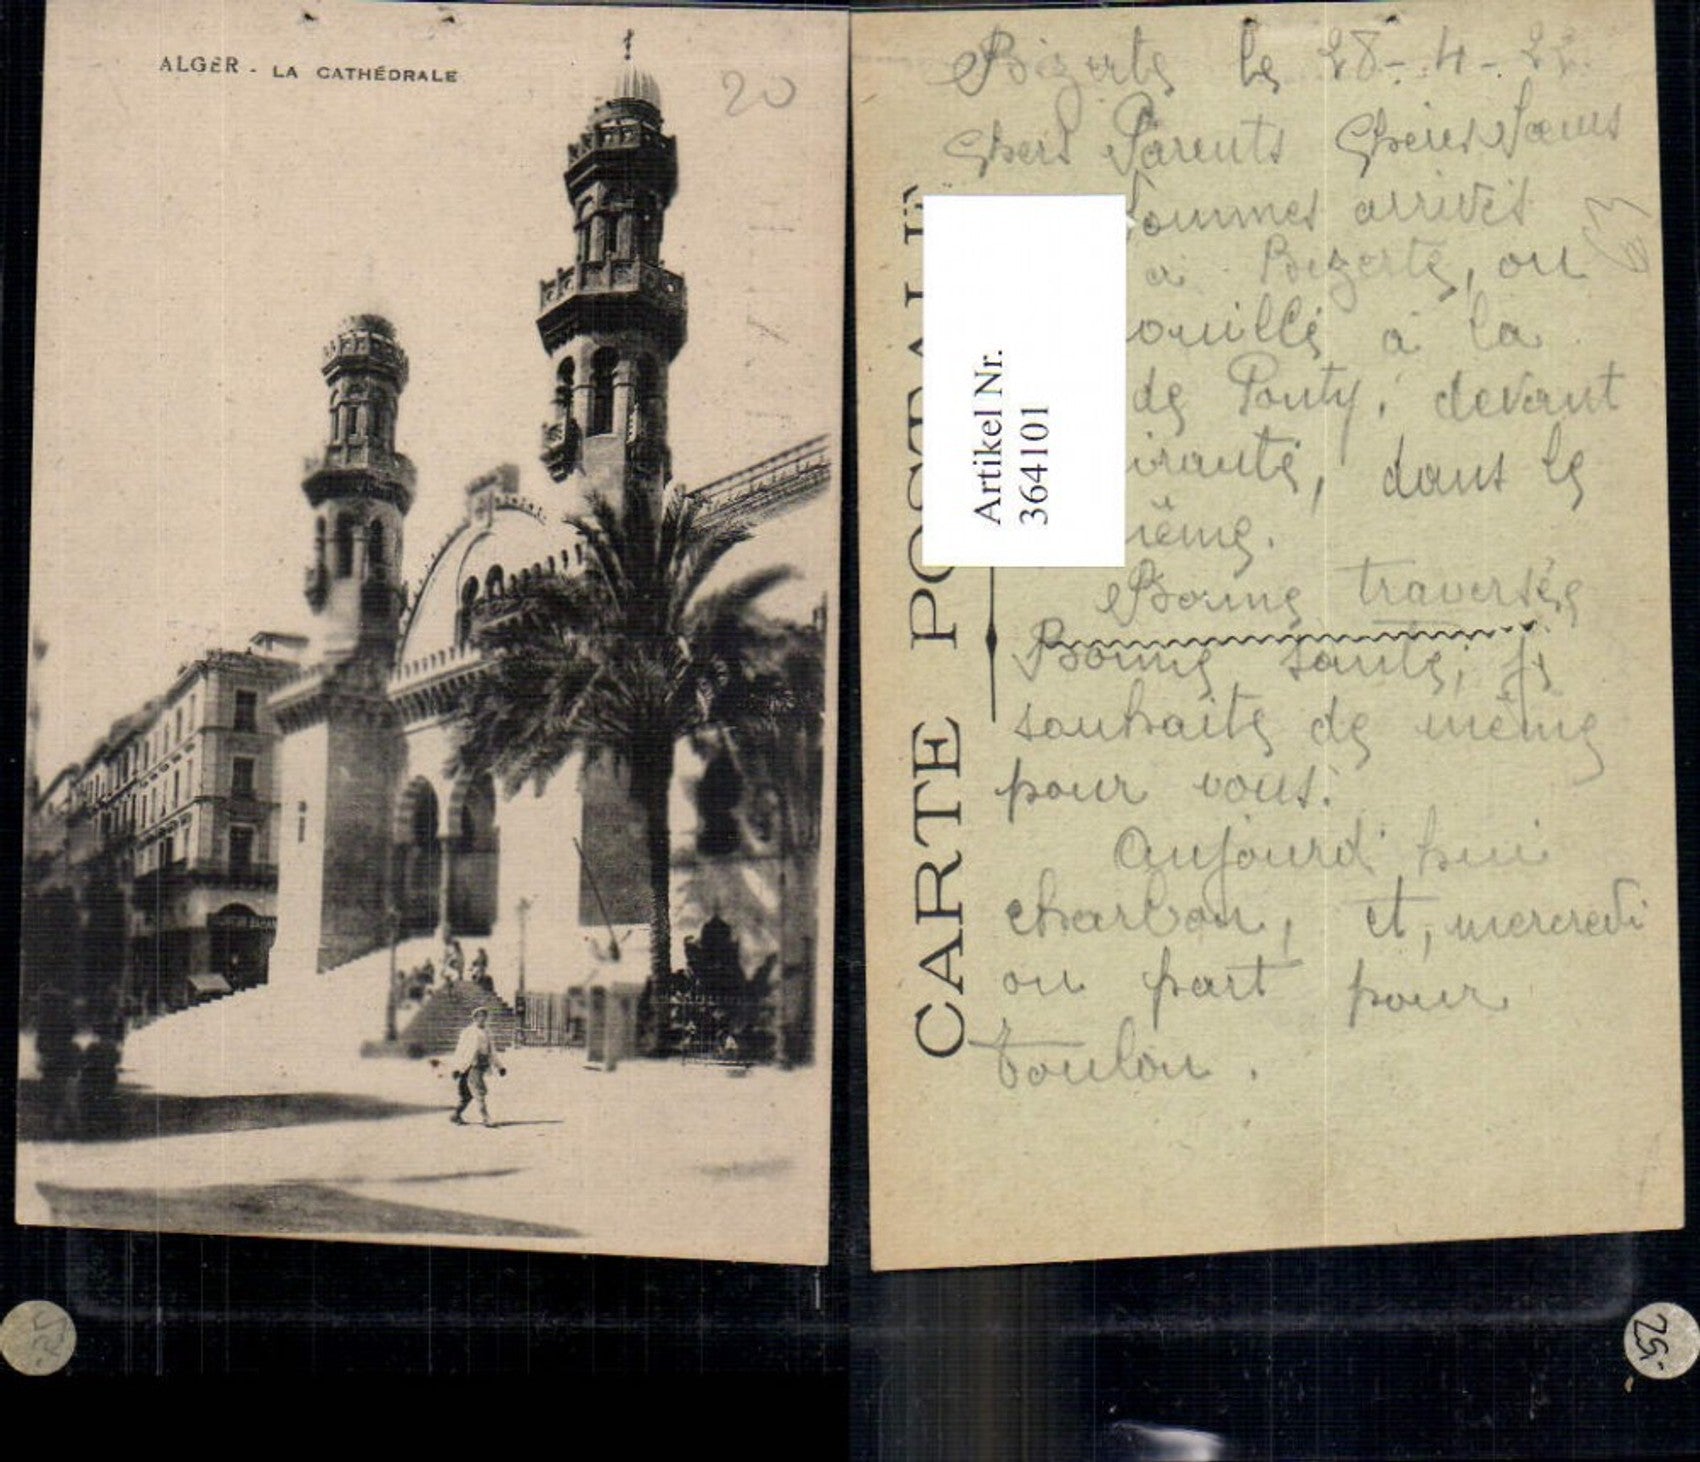 ALGER - LA CATHÉDRALE
20
CARTE POSTALE
Artikel Nr.
364101
Bizerte le 28-4-22
Chers Parents Chères Sœurs
sommes arrivés
à Bizerte, on
ouillé à la
de Ponty, devant
irante, dans le
ième.
Bonne traversée
Bonne santé, je
souhaite de même
pour vous.
Aujourd'hui
charbon, et, mercredi
on part pour
Toulon.
25
25.-